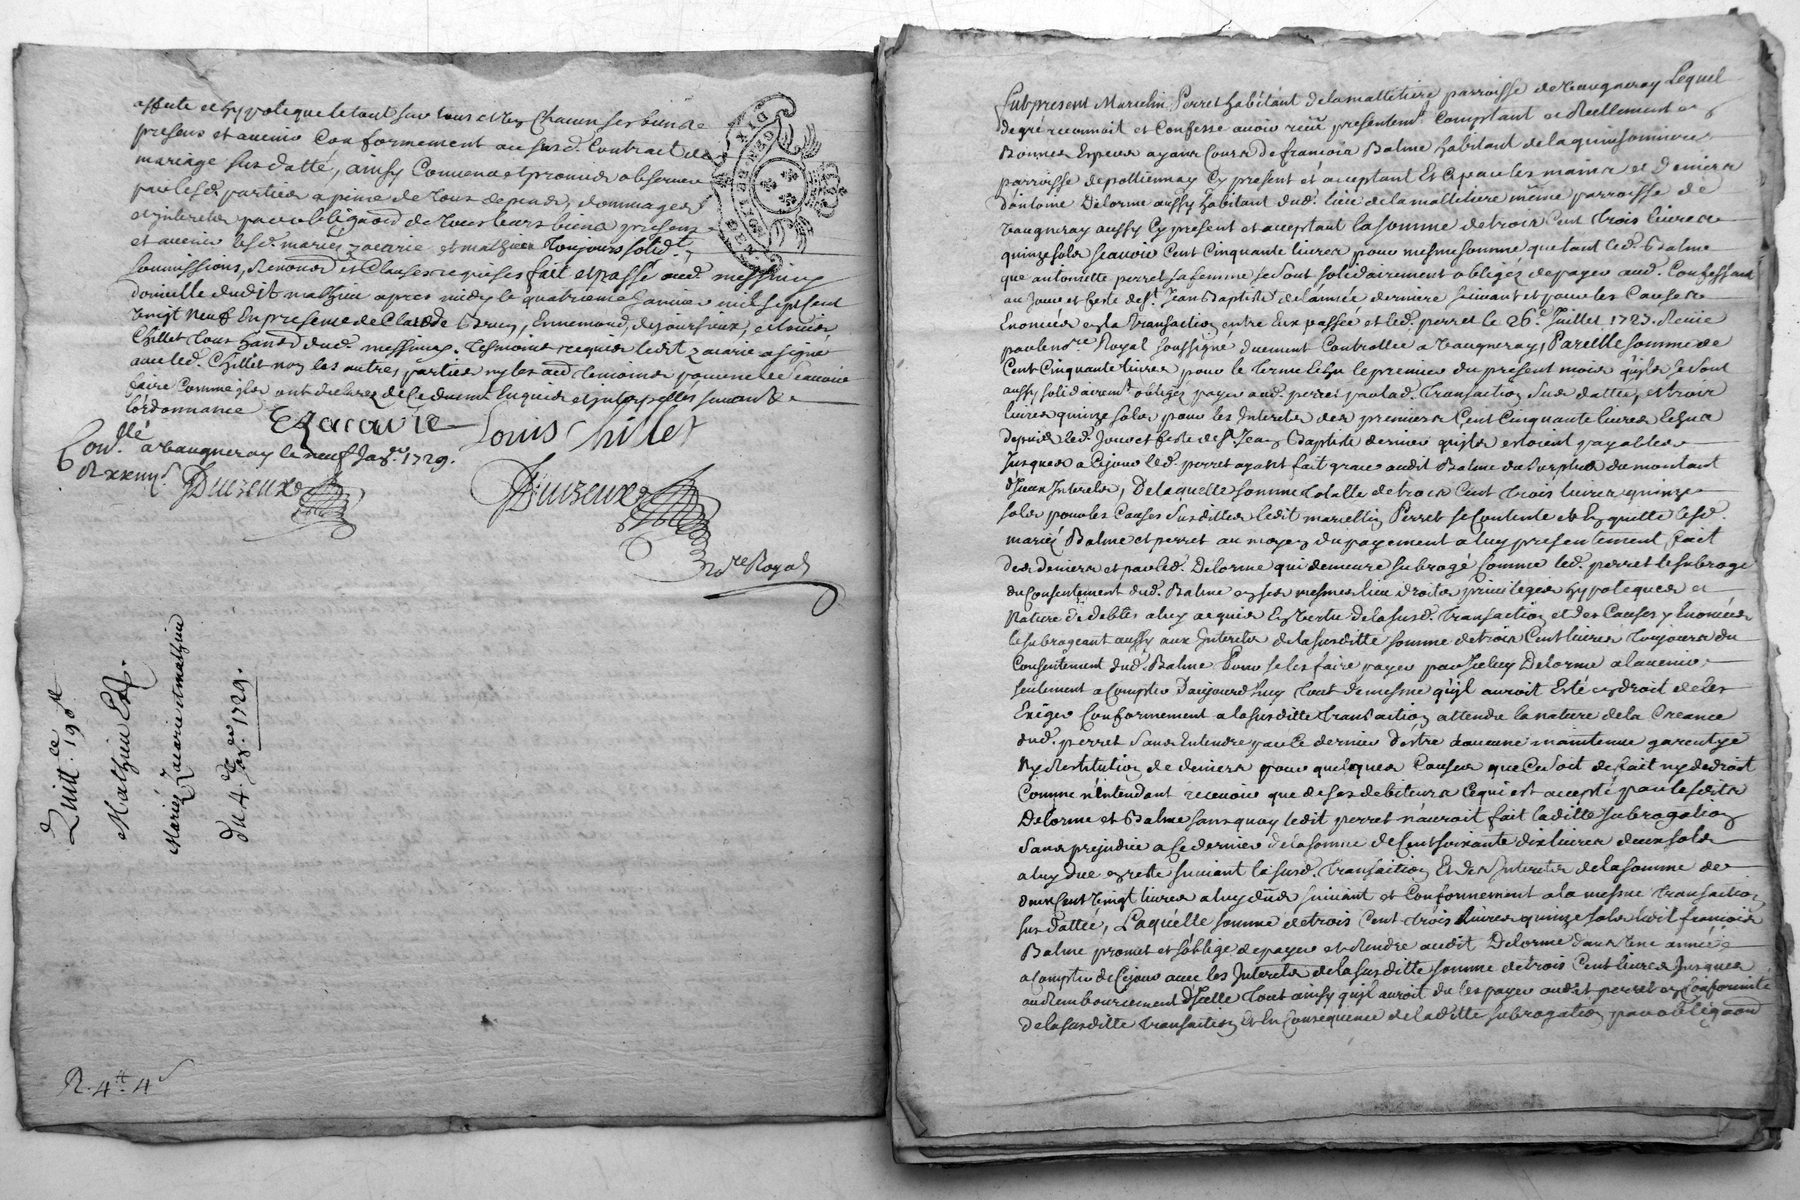 affecte et hypotequeletant sur tous et Ung Chacun ses biens
presens et avenir Conformement au susd. Contrat de
mariage susdatté, ainsy Convenu et promis observer
par lesd. parties a peine de tous depens, dommages
et interets par obligaon de tous leurs biens presens
et avenir lesd. mariez zacarie et mathieu toujours solidt.
soumissions, Renonons et Clauses requises fait et passé aud. messimy
domicille dudit mathieu apres midy le quatrieme Janvier mil sept cent
vingt neuf En presence de Claude Brun, Ennemond, desjoursieux, et louis
Chillet tous habitd dud. messimy. Tesmoins requis ledit zacarie a signé
avec led. Chillet non les autres parties ny led. Temoins pour ne le scavoir
faire Comme ils ont declaré de ce duement Enquis et interpellés suivant
l'ordonnance
Zacarie Louis Chillet
Conllé a vaugneray le neuf Janer 1729.
R xxiiijs. Duizeux
Duizeux
Nore Royal
Quittce 190tt
Mathieu Et
Mariez Zacarie et mathieu
du 4e. Janer. 1729.
R. 4tt. 4s
Fut present Marcelin Perret habitant de la milletiere parroisse de Vaugneray Lequel
de gré reconnoit et Confesse avoir reçû presentemt Comptant et Reellement en
Bonnes Especes ayans Cours de francois Balme habitant de la quinsonniere
parroisse de pollionnay Cy present et acceptant Et a par les mains et deniers
d'antoine Delorme aussy habitant dud. lieu de la milletiere même parroisse de
Vaugneray aussy Cy present et acceptant la somme de trois Cent trois livres
quinze sols scavoir Cent Cinquante livres pour mesme somme que tant led. Balme
que antoinette perret sa femme se sont solidairement obligéz de payer aud. Confessant
au Jour et feste de St. Jean Baptiste de l'année derniere suivant et pour les Causes
Enoncées en la transaction entre Eux passée et led. perret le 26e. Juillet 1723. Reçüe
par le nore Royal soussigné duement Controllée a Vaugneray, Pareille somme de
Cent Cinquante livres pour le terme Echu le premier du present mois qu'ils se sont
aussy solidairemt obligéz payer aud. perret par lad. Transaction sus dattée, et trois
livres quinze sols pour les Interets des premiers Cent Cinquante livres Echus
depuis led. Jour et feste de St Jean Baptiste dernier qu'ils estoient payables
Jusques a ce jour led. perret ayant fait grace audit Balme du surplus du montant
d'Iceux Interets, De laquelle somme totalle de trois Cent trois livres quinze
sols pour les Causes susdittes ledit marcellin Perret se Contente et En quitte lesd.
mariez Balme et perret au moyen du payement a luy presentement fait
des deniers et par led. Delorme qui demeure subrogé Comme led. perret le subroge
du Consentement dud. Balme en ses mesmes lieu droits privileges hypoteques et
Nature de debte a luy acquis En Vertu de la susd. Transaction et des Causes y Enoncées
le subrogeant aussy aux Interets de la susditte somme de trois Cent livres toujours du
Consentement dud. Balme Pour se les faire payer par Iceluy Delorme a l'avenir
seulement a Compter D'aujourd'huy tout de mesme qu'il auroit Esté en droit de les
Exiger Conformement a la susditte transaction attendu la nature de la Creance
dud. perret sans Entendre par ce dernier d'estre d'aucune maintenüe garentye
ny Restitution de deniers pour quelques Causes que Ce soit de fait ny de droit
Comme n'entendant recevoir que de ses debiteurs Ce qui est accepté par lesdits
Delorme et Balme sans quoy ledit perret n'auroit fait laditte subrogation
Sans prejudice a ce dernier de la somme de Cent soixante dix livres deux sols
a luy düe en reste suivant la susd. transaction Et des Interets de la somme de
deux Cent Vingt livres a luy düs suivant et Conformement a la mesme transaction
sus dattée, Laquelle somme de trois Cent trois livres quinze sols ledit francois
Balme promet et s'oblige de payer et Rendre audit Delorme dans Une année
a Compter de Ce jour avec les Interets de la susditte somme de trois Cent livres Jusques
au Remboursement d'Icelle tout ainsy qu'il auroit du les payer audit perret en Conformité
de la susditte transaction Et En Consequence de laditte subrogation par obligaon